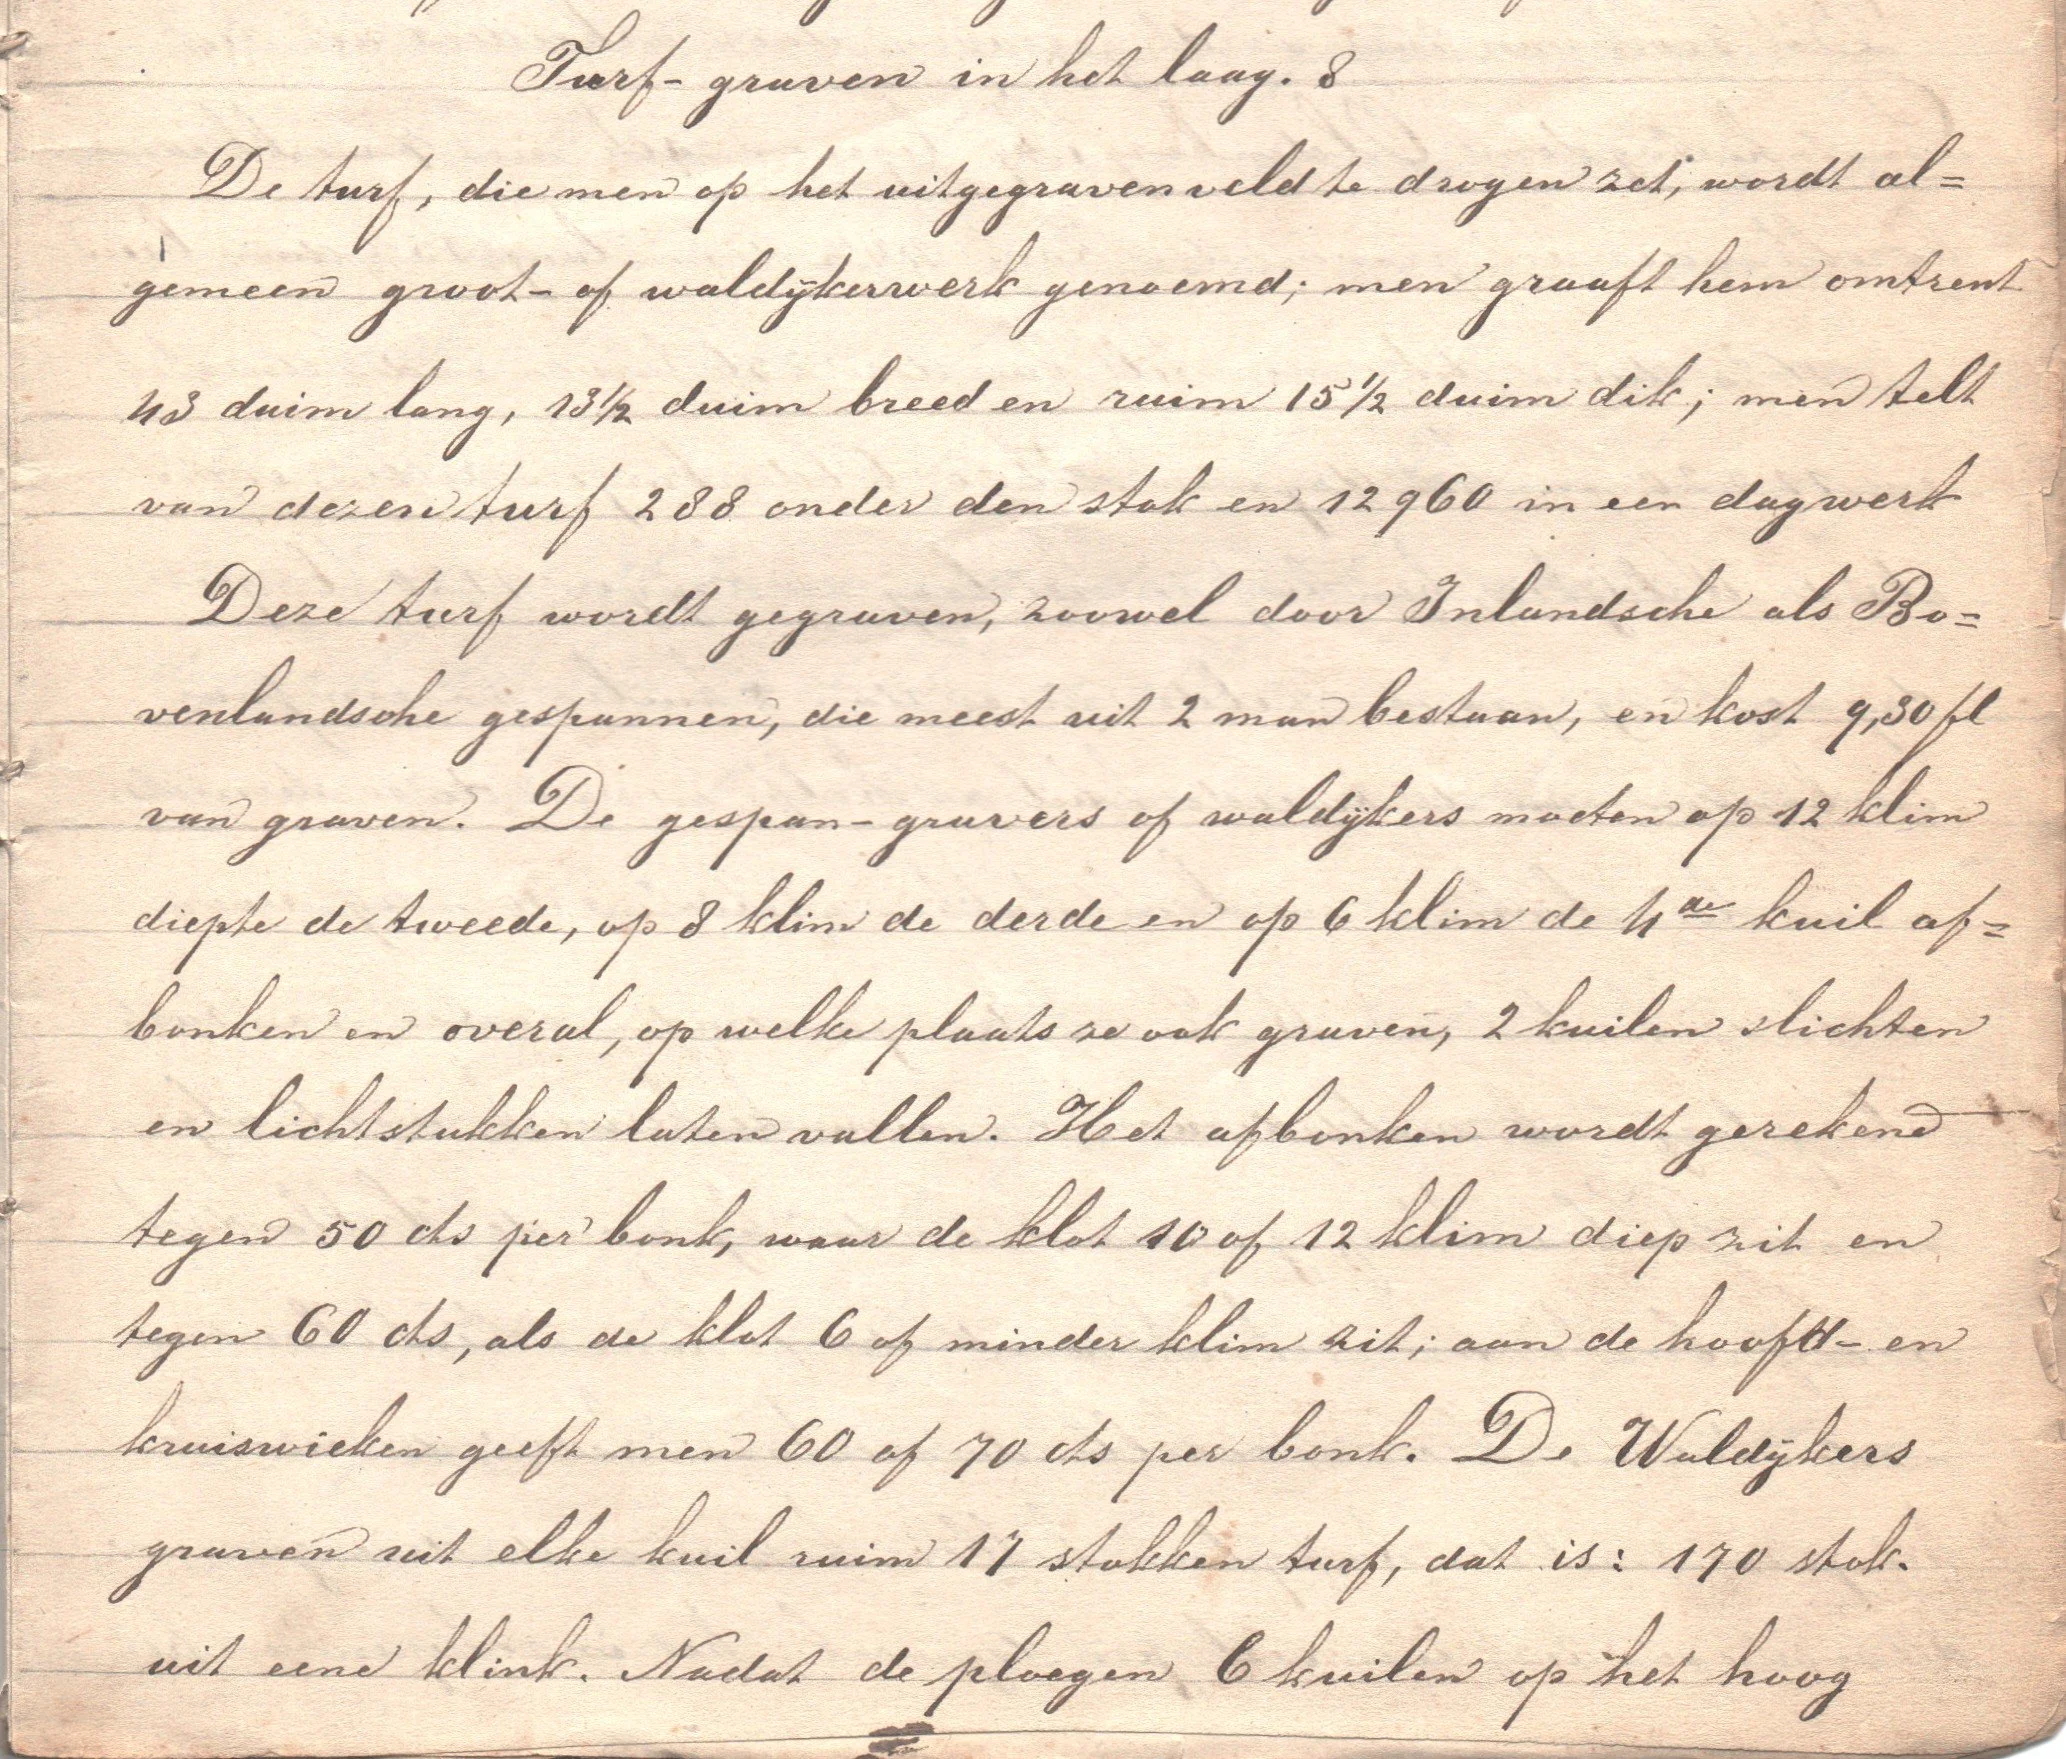 Turf- graven in het laag. 8
De turf, die men op het uitgegraven veld te drogen zet, wordt al=
gemeen groot- of waldijkerwerk genoemd; men graaft hem omtrent
43 duim lang, 13 1/2 duim breed en ruim 15 1/2 duim dik; men telt
van dezen turf 288 onder den stok en 12960 in een dagwerk
Deze turf wordt gegraven, zoowel door Inlandsche als Bo=
venlandsche gespannen, die meest uit 2 man bestaan, en kost 9,30 fl
van graven. De gespan-gravers of waldijkers moeten op 12 klim
diepte de tweede, op 8 klim de derde en op 6 klim de 4de kuil af=
bonken en overal, op welke plaats ze ook graven, 2 kuilen slichten
en lichtstukken laten vallen. Het afbonken wordt gerekend
tegen 50 cts per bonk, waar de klot 10 of 12 klim diep zit en
tegen 60 cts, als de klot 6 of minder klim zit; aan de hoofd- en
kruiswieken geeft men 60 of 70 cts per bonk. De Waldijkers
graven uit elke kuil ruim 17 stokken turf, dat is: 170 stok.
uit eene klink. Nadat de ploegen 6 kuilen op het hoog